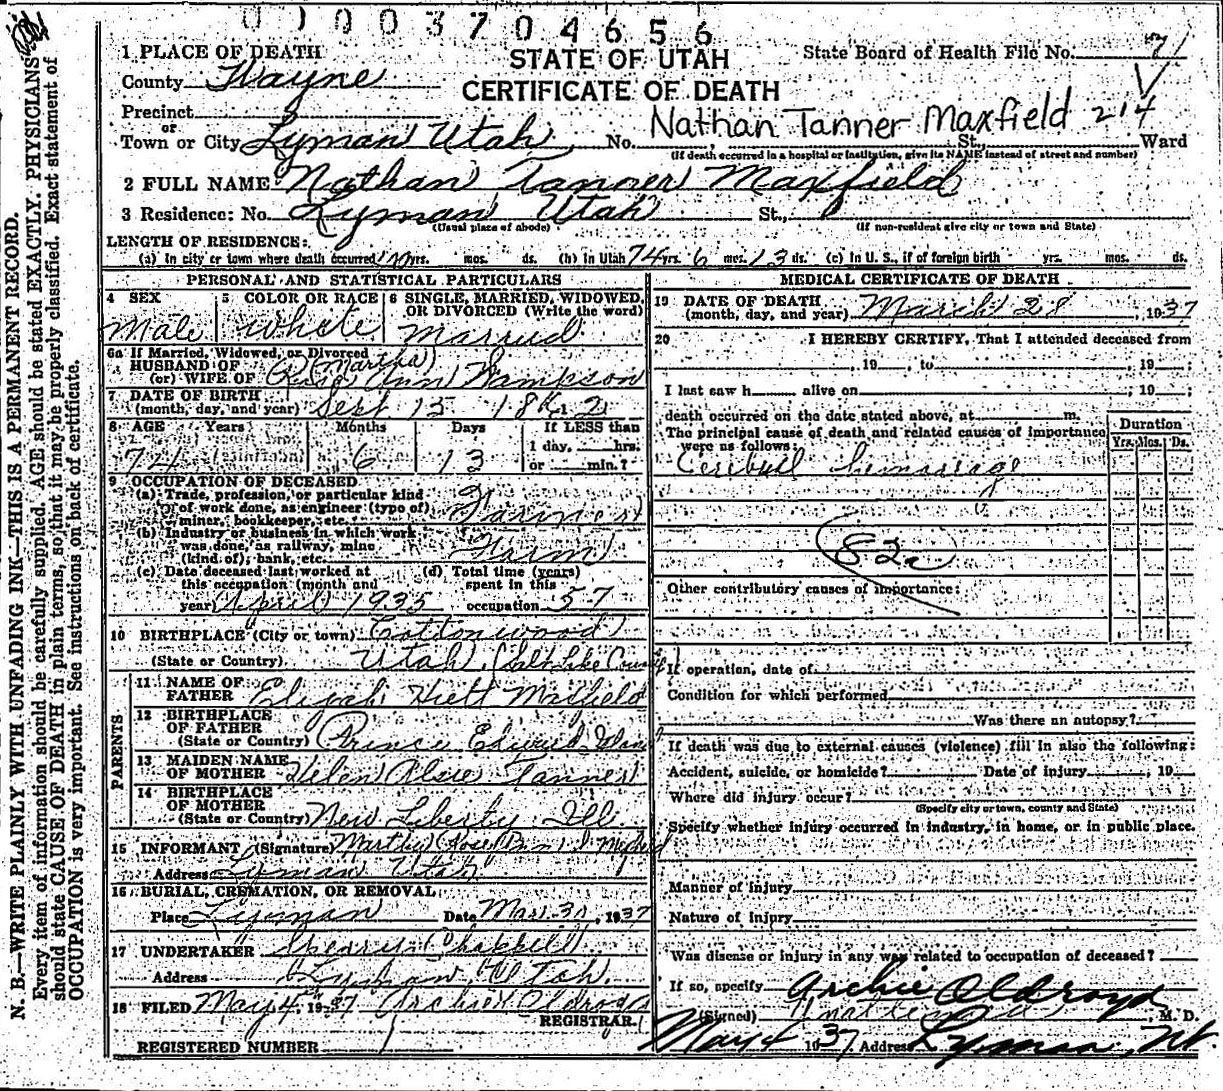 0 0 0 3 7 0 4 6 5 6
1 PLACE OF DEATH
STATE OF UTAH
State Board of Health File No. 71
County Wayne
CERTIFICATE OF DEATH
Precinct
Nathan Tanner Maxfield 214
or
Town or City Lyman Utah No. St., Ward
(If death occurred in a hospital or institution, give its NAME instead of street and number)
2 FULL NAME Nathan Tanner Maxfield
3 Residence: No. Lyman Utah St.,
(Usual place of abode)
(If non-resident give city or town and State)
LENGTH OF RESIDENCE:
(a) In city or town where death occurred yrs. mos. ds. (b) In Utah 74 yrs. 6 mos. 13 ds. (c) In U. S., if of foreign birth yrs. mos. ds.
PERSONAL AND STATISTICAL PARTICULARS
4 SEX
Male
5 COLOR OR RACE
white
6 SINGLE, MARRIED, WIDOWED, OR DIVORCED (Write the word)
Married
6a If Married, Widowed, or Divorced
HUSBAND OF (Martha)
(or) WIFE OF Rose Ann Sampson
7 DATE OF BIRTH
(month, day, and year) Sept 15 1862
8 AGE Years Months Days If LESS than
1 day, hrs.
74 6 13 or min.?
9 OCCUPATION OF DECEASED
(a) Trade, profession, or particular kind
of work done, as engineer (type of)
miner, bookkeeper, etc. Farmer
(b) Industry or business in which work
was done, as railway, mine
(kind of), bank, etc. Farm
(c) Date deceased last worked at
this occupation (month and
year) April 1935
(d) Total time (years)
spent in this
occupation 57
10 BIRTHPLACE (City or town) Cottonwood
(State or Country) Utah (Salt Lake County)
PARENTS
11 NAME OF
FATHER Elijah Hiett Maxfield
12 BIRTHPLACE
OF FATHER
(State or Country) Prince Edward Island
13 MAIDEN NAME
OF MOTHER Helen Alcie Tanner
14 BIRTHPLACE
OF MOTHER
(State or Country) New Liberty Ill.
15 INFORMANT (Signature) Martha Rose Ann
Address Lyman Utah
16 BURIAL, CREMATION, OR REMOVAL
Place Lyman Date Mar. 30, 1937
17 UNDERTAKER Chappell
Address Lyman Utah.
18 FILED May 4, 1937 Archie Oldroyd
REGISTRAR.
REGISTERED NUMBER 1
MEDICAL CERTIFICATE OF DEATH
19 DATE OF DEATH
(month, day, and year) March 28, 1937
20 I HEREBY CERTIFY, That I attended deceased from
, 19 , to , 19 ;
I last saw h alive on , 19 ;
death occurred on the date stated above, at m.
The principal cause of death and related causes of importance
were as follows:
Duration
Yrs. Mos. Ds.
Cerebuel hemarrage
82a
Other contributory causes of importance:
If operation, date of
Condition for which performed
Was there an autopsy?
If death was due to external causes (violence) fill in also the following:
Accident, suicide, or homicide? Date of injury , 19
Where did injury occur?
(Specify city or town, county and State)
Specify whether injury occurred in industry, in home, or in public place.
Manner of injury
Nature of injury
Was disease or injury in any way related to occupation of deceased?
If so, specify Archie Oldroyd
(Signed) , M. D.
May 4 1937 Address Lyman, Ut.
N. B.—WRITE PLAINLY WITH UNFADING INK—THIS IS A PERMANENT RECORD.
Every item of information should be carefully supplied. AGE should be stated EXACTLY. PHYSICIANS
should state CAUSE OF DEATH in plain terms, so that it may be properly classified. Exact statement of
OCCUPATION is very important. See instructions on back of certificate.